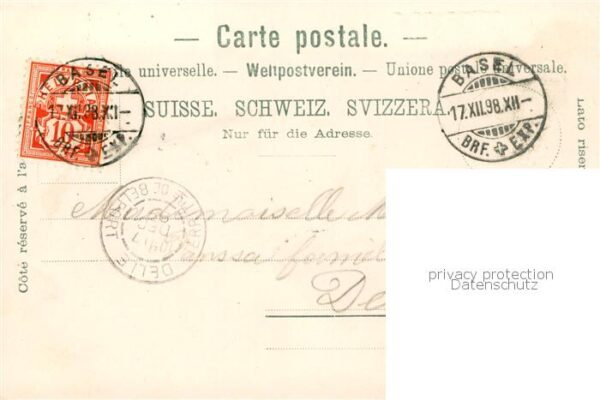 — Carte postale. —
le universelle. — Weltpostverein. — Unione postale universale.
SUISSE. SCHWEIZ. SVIZZERA.
Nur für die Adresse.
BASEL
XII.98.XII—
BRF. EXP.
10
BASEL
17.XII.98.XII—
BRF. EXP.
Côté réservé à l'a
Lato riser
DELLE
DE BELFORT
Mademoiselle M
De
privacy protection
Datenschutz